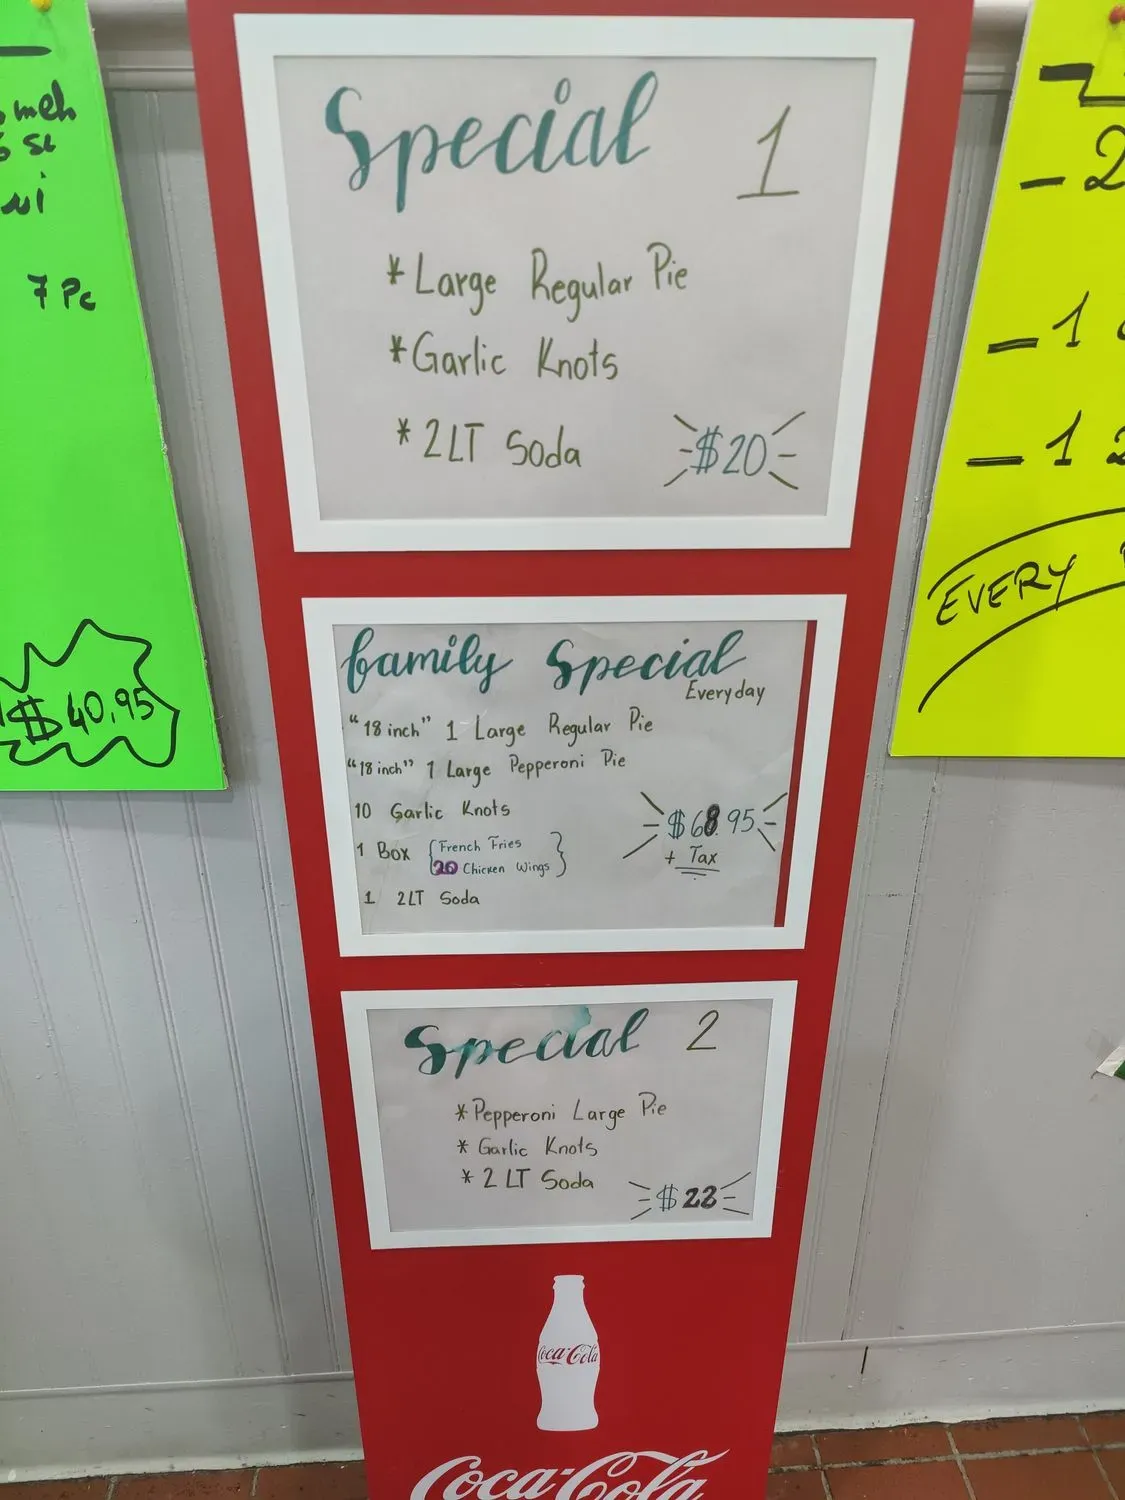 Special 1
* Large Regular Pie
* Garlic Knots
* 2LT Soda
$20
family Special
Everyday
"18 inch" 1 Large Regular Pie
"18 inch" 1 Large Pepperoni Pie
10 Garlic Knots
1 Box { French Fries
20 Chicken Wings }
1 2LT Soda
$68.95
+ Tax
Special 2
* Pepperoni Large Pie
* Garlic Knots
* 2 LT Soda
$22
Coca-Cola
Coca-Cola
7 Pc
$40.95
- 2
- 1
- 1 2
EVERY